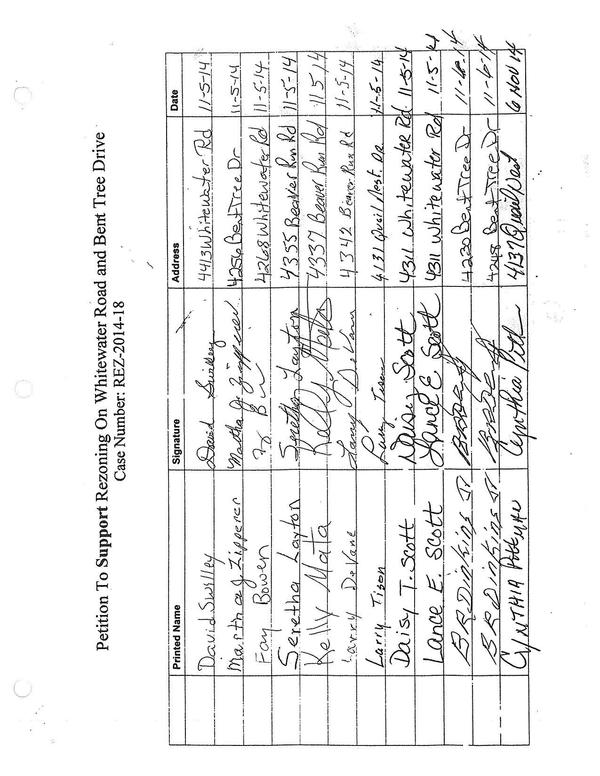 Petition To Support Rezoning On Whitewater Road and Bent Tree Drive
Case Number: REZ-2014-18
Printed Name Signature Address Date
David Swilley David Swilley 4413 Whitewater Rd 11-5-14
Martha J Zipperer Martha J. Zipperer 4256 Bent Tree Dr 11-5-14
Fay Bowen 4268 Whitewater Rd 11-5-14
Seretha Layton Seretha Layton 4355 Beaver Run Rd 11-5-14
Kelly Mata Kelly Mata 4337 Beaver Run Rd 11 5 14
Larry DeVane Larry DeVane 4342 Beaver Run Rd 11-5-14
Larry Tison Larry Tison 4131 Quail Nest Dr. 11-5-14
Daisy T. Scott Daisy Scott 4311 Whitewater Rd. 11-5-14
Lance E. Scott Lance E Scott 4311 Whitewater Rd 11-5-14
B R Dinkins Jr 4230 Bent Tree Dr 11-6-14
B R Dinkins Jr 4248 Bent Tree Dr 11-6-14
CYNTHIA Cynthia 4137 Quail Nest 6 NOV 14